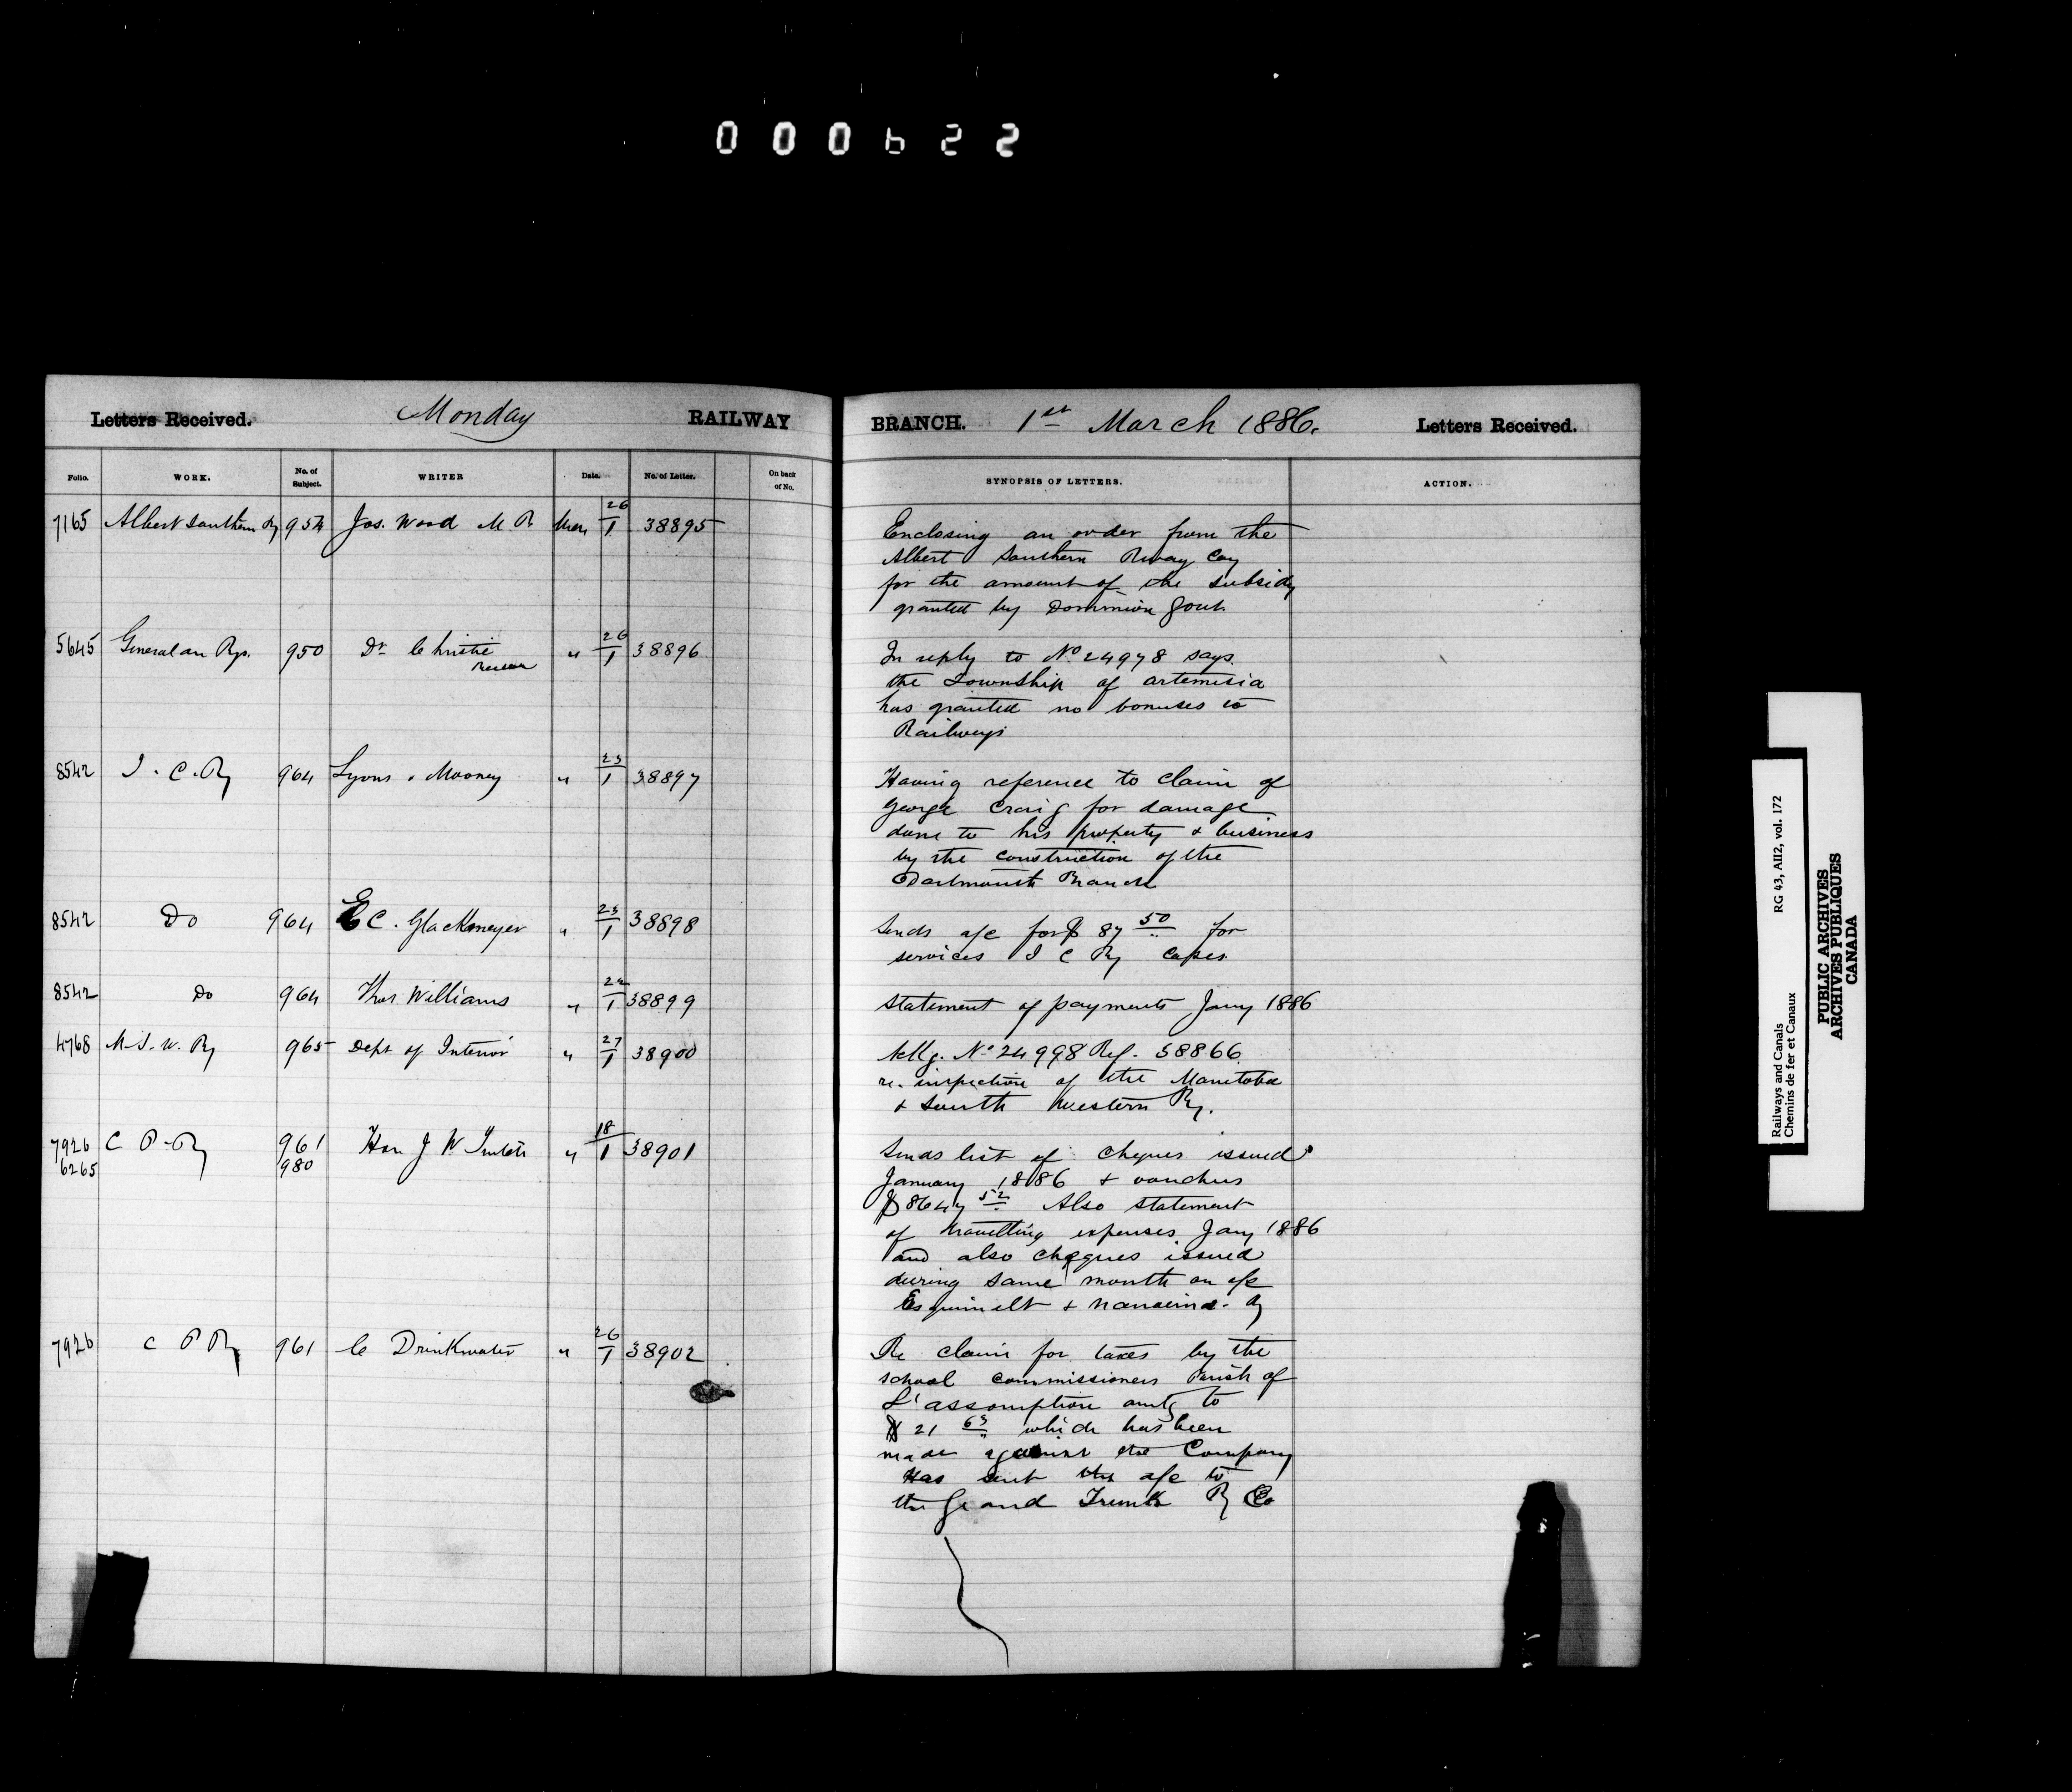 000622
Letters Received. Monday RAILWAY BRANCH. 1st March 1886. Letters Received.
Folio. WORK. No. of Subject. WRITER Date. No. of Letter. On back of No. SYNOPSIS OF LETTERS. ACTION.
7165 Albert Southern Ry 954 Jos. Wood M P Mar 26/1 38895
Enclosing an order from the
Albert Southern Rway Coy
for the amount of the subsidy
granted by Dominion Govt
5645 General an Rys. 950 Dr Christie 26/1 38896
In reply to No 24978 says
the Township of Artemisia
has granted no bonuses to
Railways
8542 I. C. Ry 964 Lyons & Mooney " 23/1 38897
Having reference to claim of
George Craig for damage
done to his property & business
by the construction of the
Dartmouth Branch
8542 Do 964 E C. Glackmeyer " 23/1 38898
Sends a/c for $ 87 50 for
services I C Ry Cases
8542 Do 964 Thos Williams " 24/1 38899
Statement of payments Jany 1886
4768 M. S. W. Ry 965 Dept of Interior " 27/1 38900
Ackg. No 24998 Ref. 38866
re. inspection of the Manitoba
& South Western Ry.
7926 C P. Ry 961 Hon J W Trutch " 18/1 38901
6265 980
Sends list of cheques issued
January 1886 & vouchers
$8647 52 Also statement
of travelling expenses Jany 1886
and also cheques issued
during same month on a/c
Esquimalt & Nanaimo. Ry
7926 C P Ry 961 C Drinkwater " 26/1 38902
Re claim for taxes by the
school commissioners Parish of
L'assomption amtg to
$ 21 63 which has been
made against the Company
Has sent the a/c to
the Grand Trunk Ry Co
Railways and Canals RG 43, AII2, vol. 172
Chemins de fer et Canaux
PUBLIC ARCHIVES
ARCHIVES PUBLIQUES
CANADA